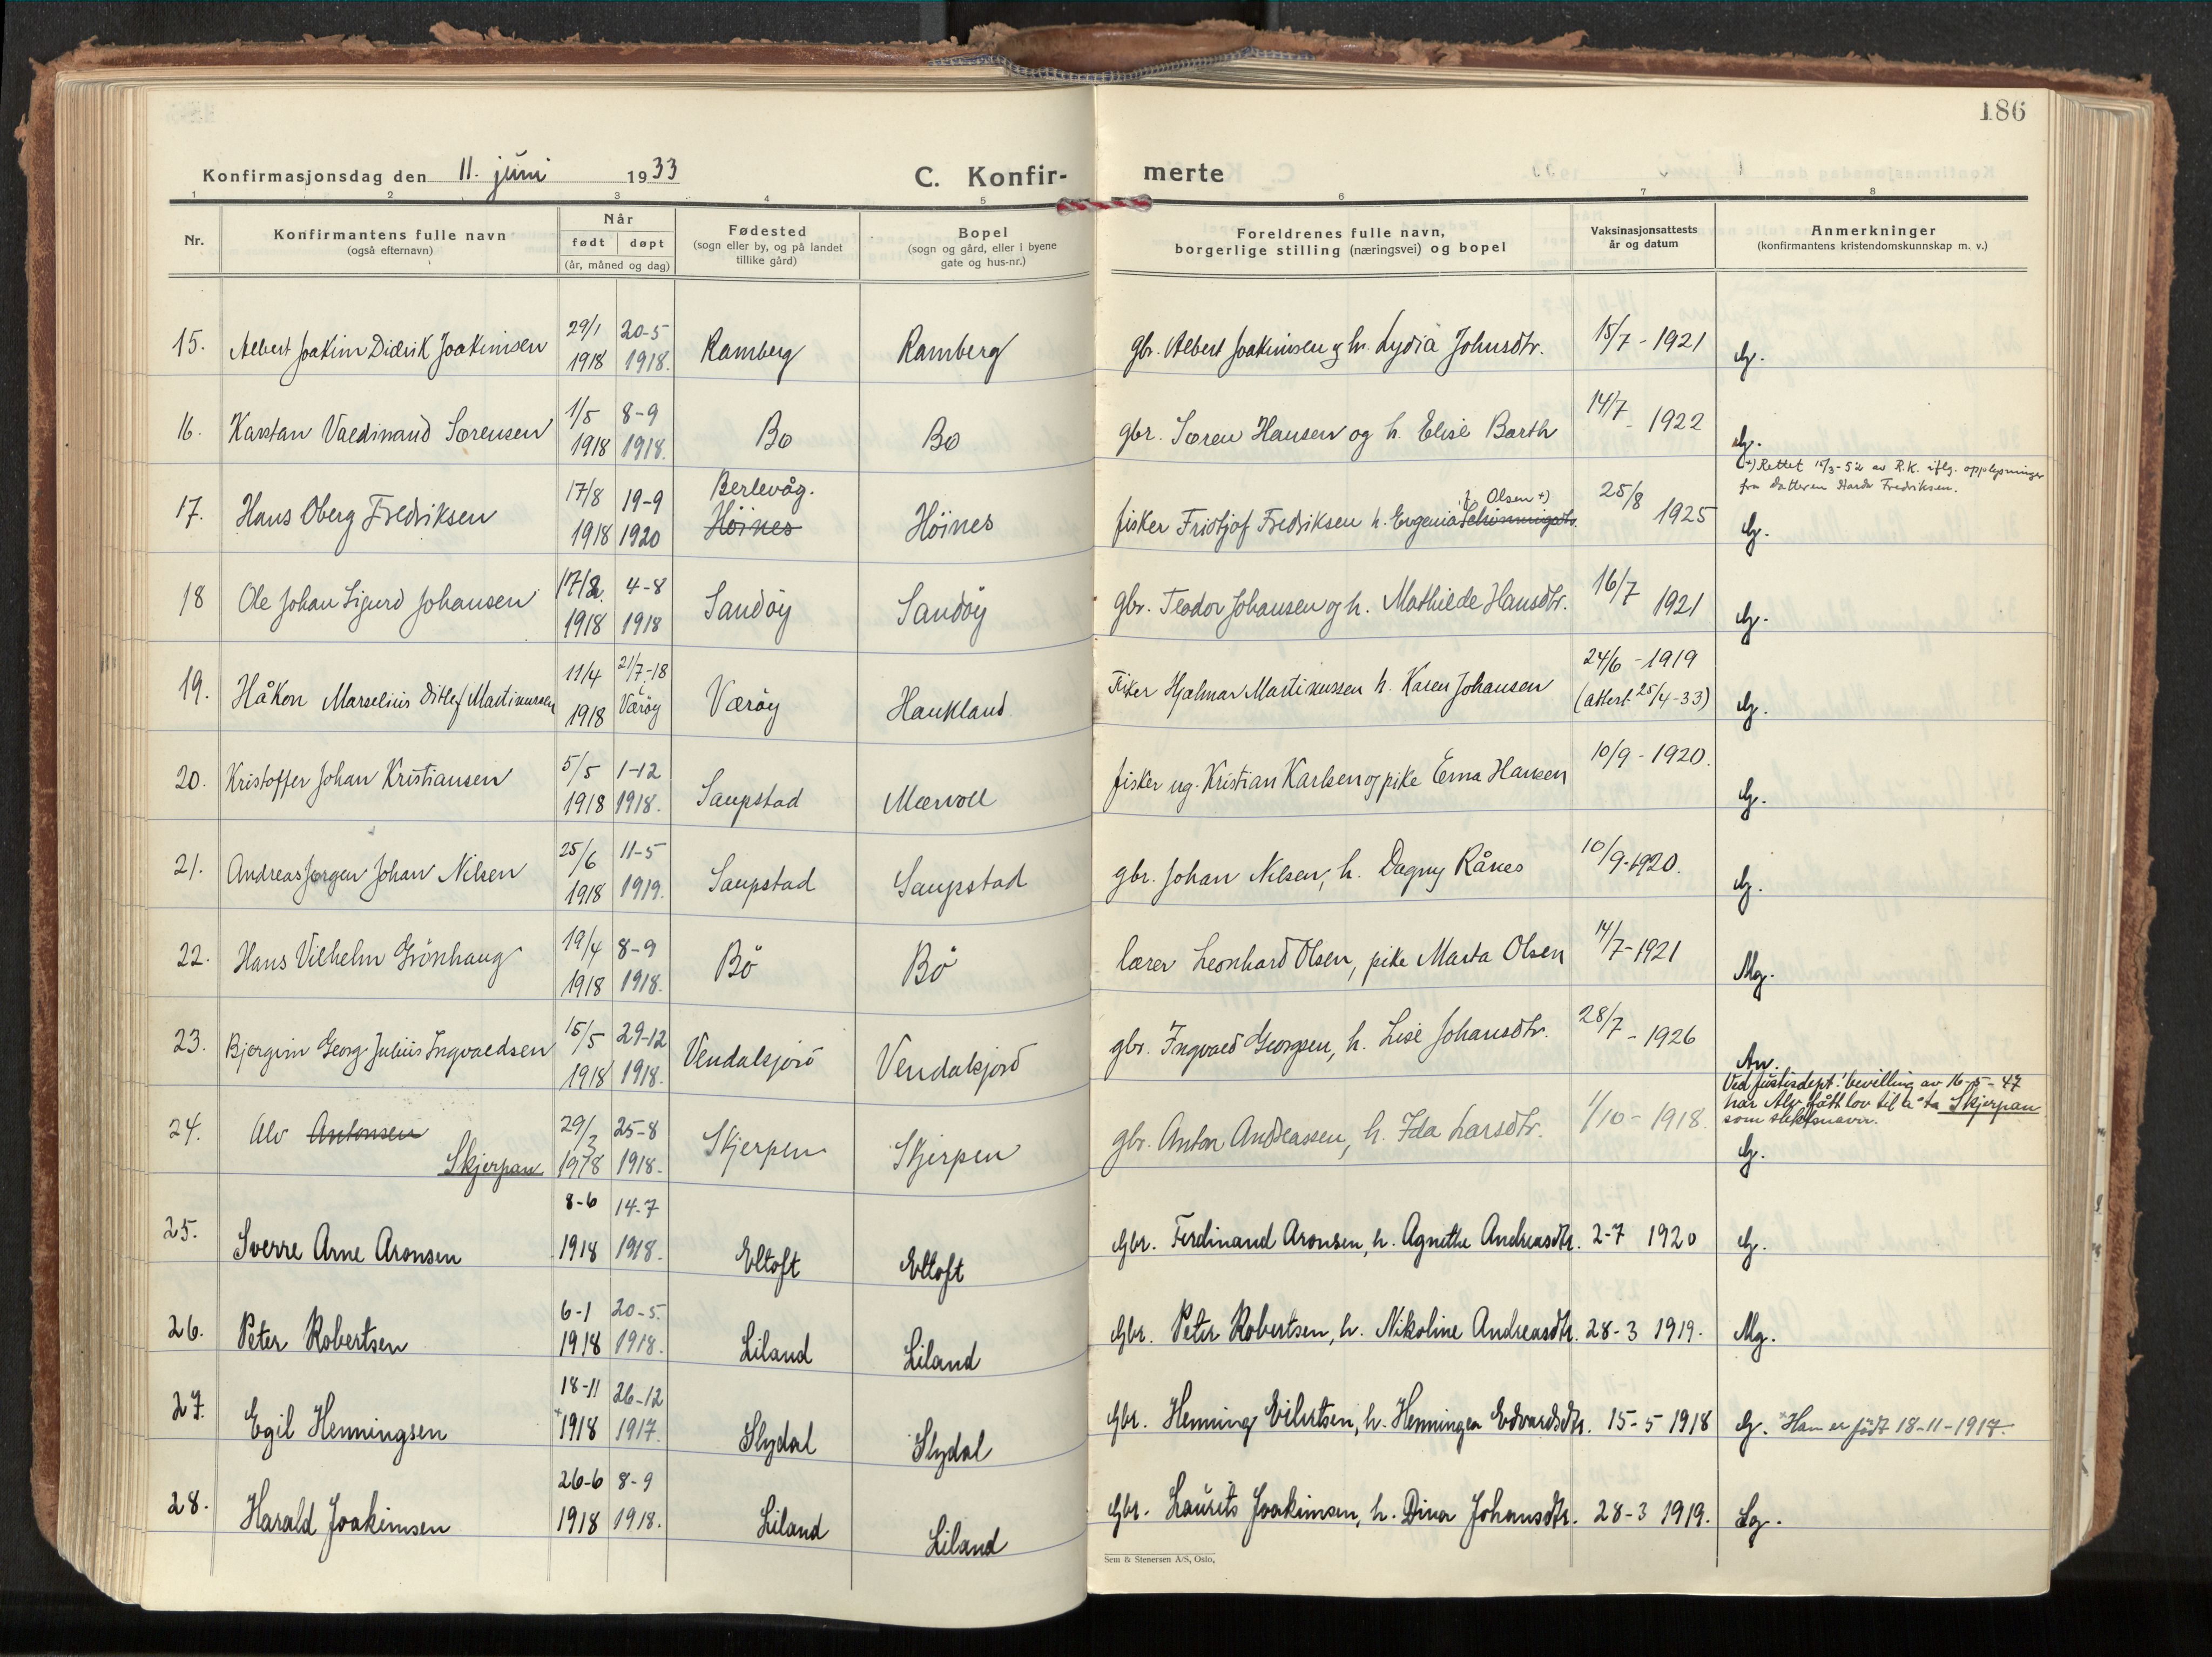 186
Konfirmasjonsdag den 11. juni 1933 C. Konfir- merte
1 2 3 4 5 6 7 8
Nr. Konfirmantens fulle navn (også efternavn) Når født døpt (år, måned og dag) Fødested (sogn eller by, og på landet tillike gård) Bopel (sogn og gård, eller i byene gate og hus-nr.) Foreldrenes fulle navn, borgerlige stilling (næringsvei) og bopel Vaksinasjonsattests år og datum Anmerkninger (konfirmantens kristendomskunnskap m. v.)
15. Albert Joakim Didrik Joakimsen 29/1 1918 20-5 1918. Ramberg Ramberg gbr. Albert Joakimsen og h. Lydia Johnsdtr. 15/7 - 1921 G.
16. Karstan Valdinand Sørensen 1/5 1918 8-9 1918. Bø Bø gbr. Søren Hansen og h. Elise Barth 14/7 - 1922 G.
17. Hans Oberg Fredriksen 17/8 1918 19-9 1920 Berlevåg. Höines Höines fisker Fridtjof Fredriksen h. Eugenia f. Olsen +) 25/8 1925 G.
+) Rettet 15/3-52 av R.K. iflg. opplysninger
fra datteren Harda Fredriksen.
18 Ole Johan Sigurd Johansen 17/2 1918 4-8 1918 Sandöy Sandöy gbr. Teodor Johansen og h. Mathilde Hansdtr. 16/7 1921 G.
19. Håkon Marselius Ditlef Martinussen 11/4 1918 21/7-18 i Værøy Værøy Haukland Fisker Hjalmar Martinussen h. Karen Johansen 24/6 - 1919 (attest 25/4-33) G.
20. Kristoffer Johan Kristiansen 5/5 1918 1-12 1918. Saupstad Mærvoll fisker ug. Kristian Karlsen og pike Erna Hansen 10/9 - 1920. G.
21. Andreas Jørgen Johan Nilsen 25/6 1918 11-5 1919. Saupstad Saupstad gbr. Johan Nilsen, h. Dagny Rånes 10/9-1920. G.
22. Hans Vilhelm Grönhaug 19/4 1918 8-9 1918. Bö Bö lærer Leonhard Olsen, pike Marta Olsen 14/7-1921 Mg.
23. Bjørgvin Georg Julius Ingvaldsen 15/5 1918 29-12 1918. Vendalsjord Vendalsjord gbr. Ingvald Georgsen, h. Lise Johansdtr. 28/7 - 1926
24. Alv Antonsen Skjerpan 29/3 1918 25-8 1918. Skjerpen Skjerpen gbr. Anton Andreassen, h. Ida Larsdtr. 1/10 - 1918. G.
Ved justisdept. bevilling av 16-5-47
har Alv fått lov til å ta Skjerpan
som slektsnavn.
25. Sverre Arne Aronsen 8-6 1918 14-7 1918. Eltoft Eltoft Gbr. Ferdinand Aronsen, h. Agnethe Andreasdtr. 2-7 1920 G.
26. Peter Robertsen 6-1 1918 20-5. 1918. Liland Liland Gbr. Peter Robertsen, h. Nikoline Andreasdtr. 28-3 1919. Mg.
27. Egil Henningsen 18-11 +1918 26-12 1917. Slydal Slydal Gbr. Henning Eilertsen, h. Henningea Edvardsdtr. 15-5 1918 G. *Han er født 18-11-1917.
28. Harald Joakimsen 26-6 1918 8-9 1918. Liland Liland Gbr. Laurits Joakimsen, h. Dina Johansdtr. 28-3 1919. Lg.
Sem & Stenersen A/S, Oslo,